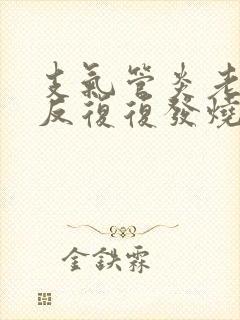 支氣管炎老
反復復發燒
金鉄霖